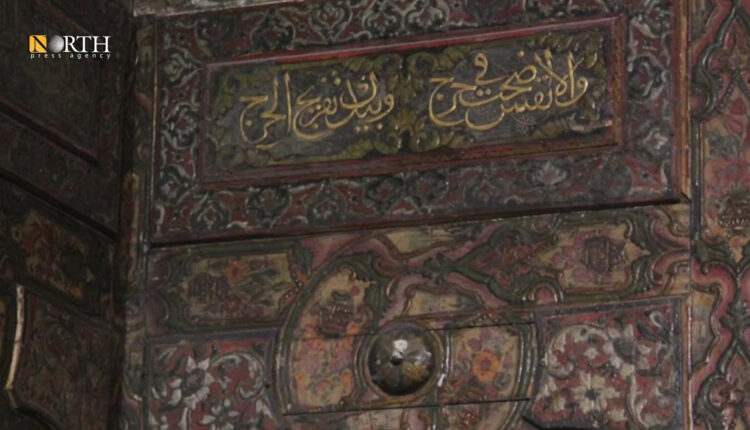 NORTH
press agency
والانفس اضحت في حرج وبيدك تفريج الحرج